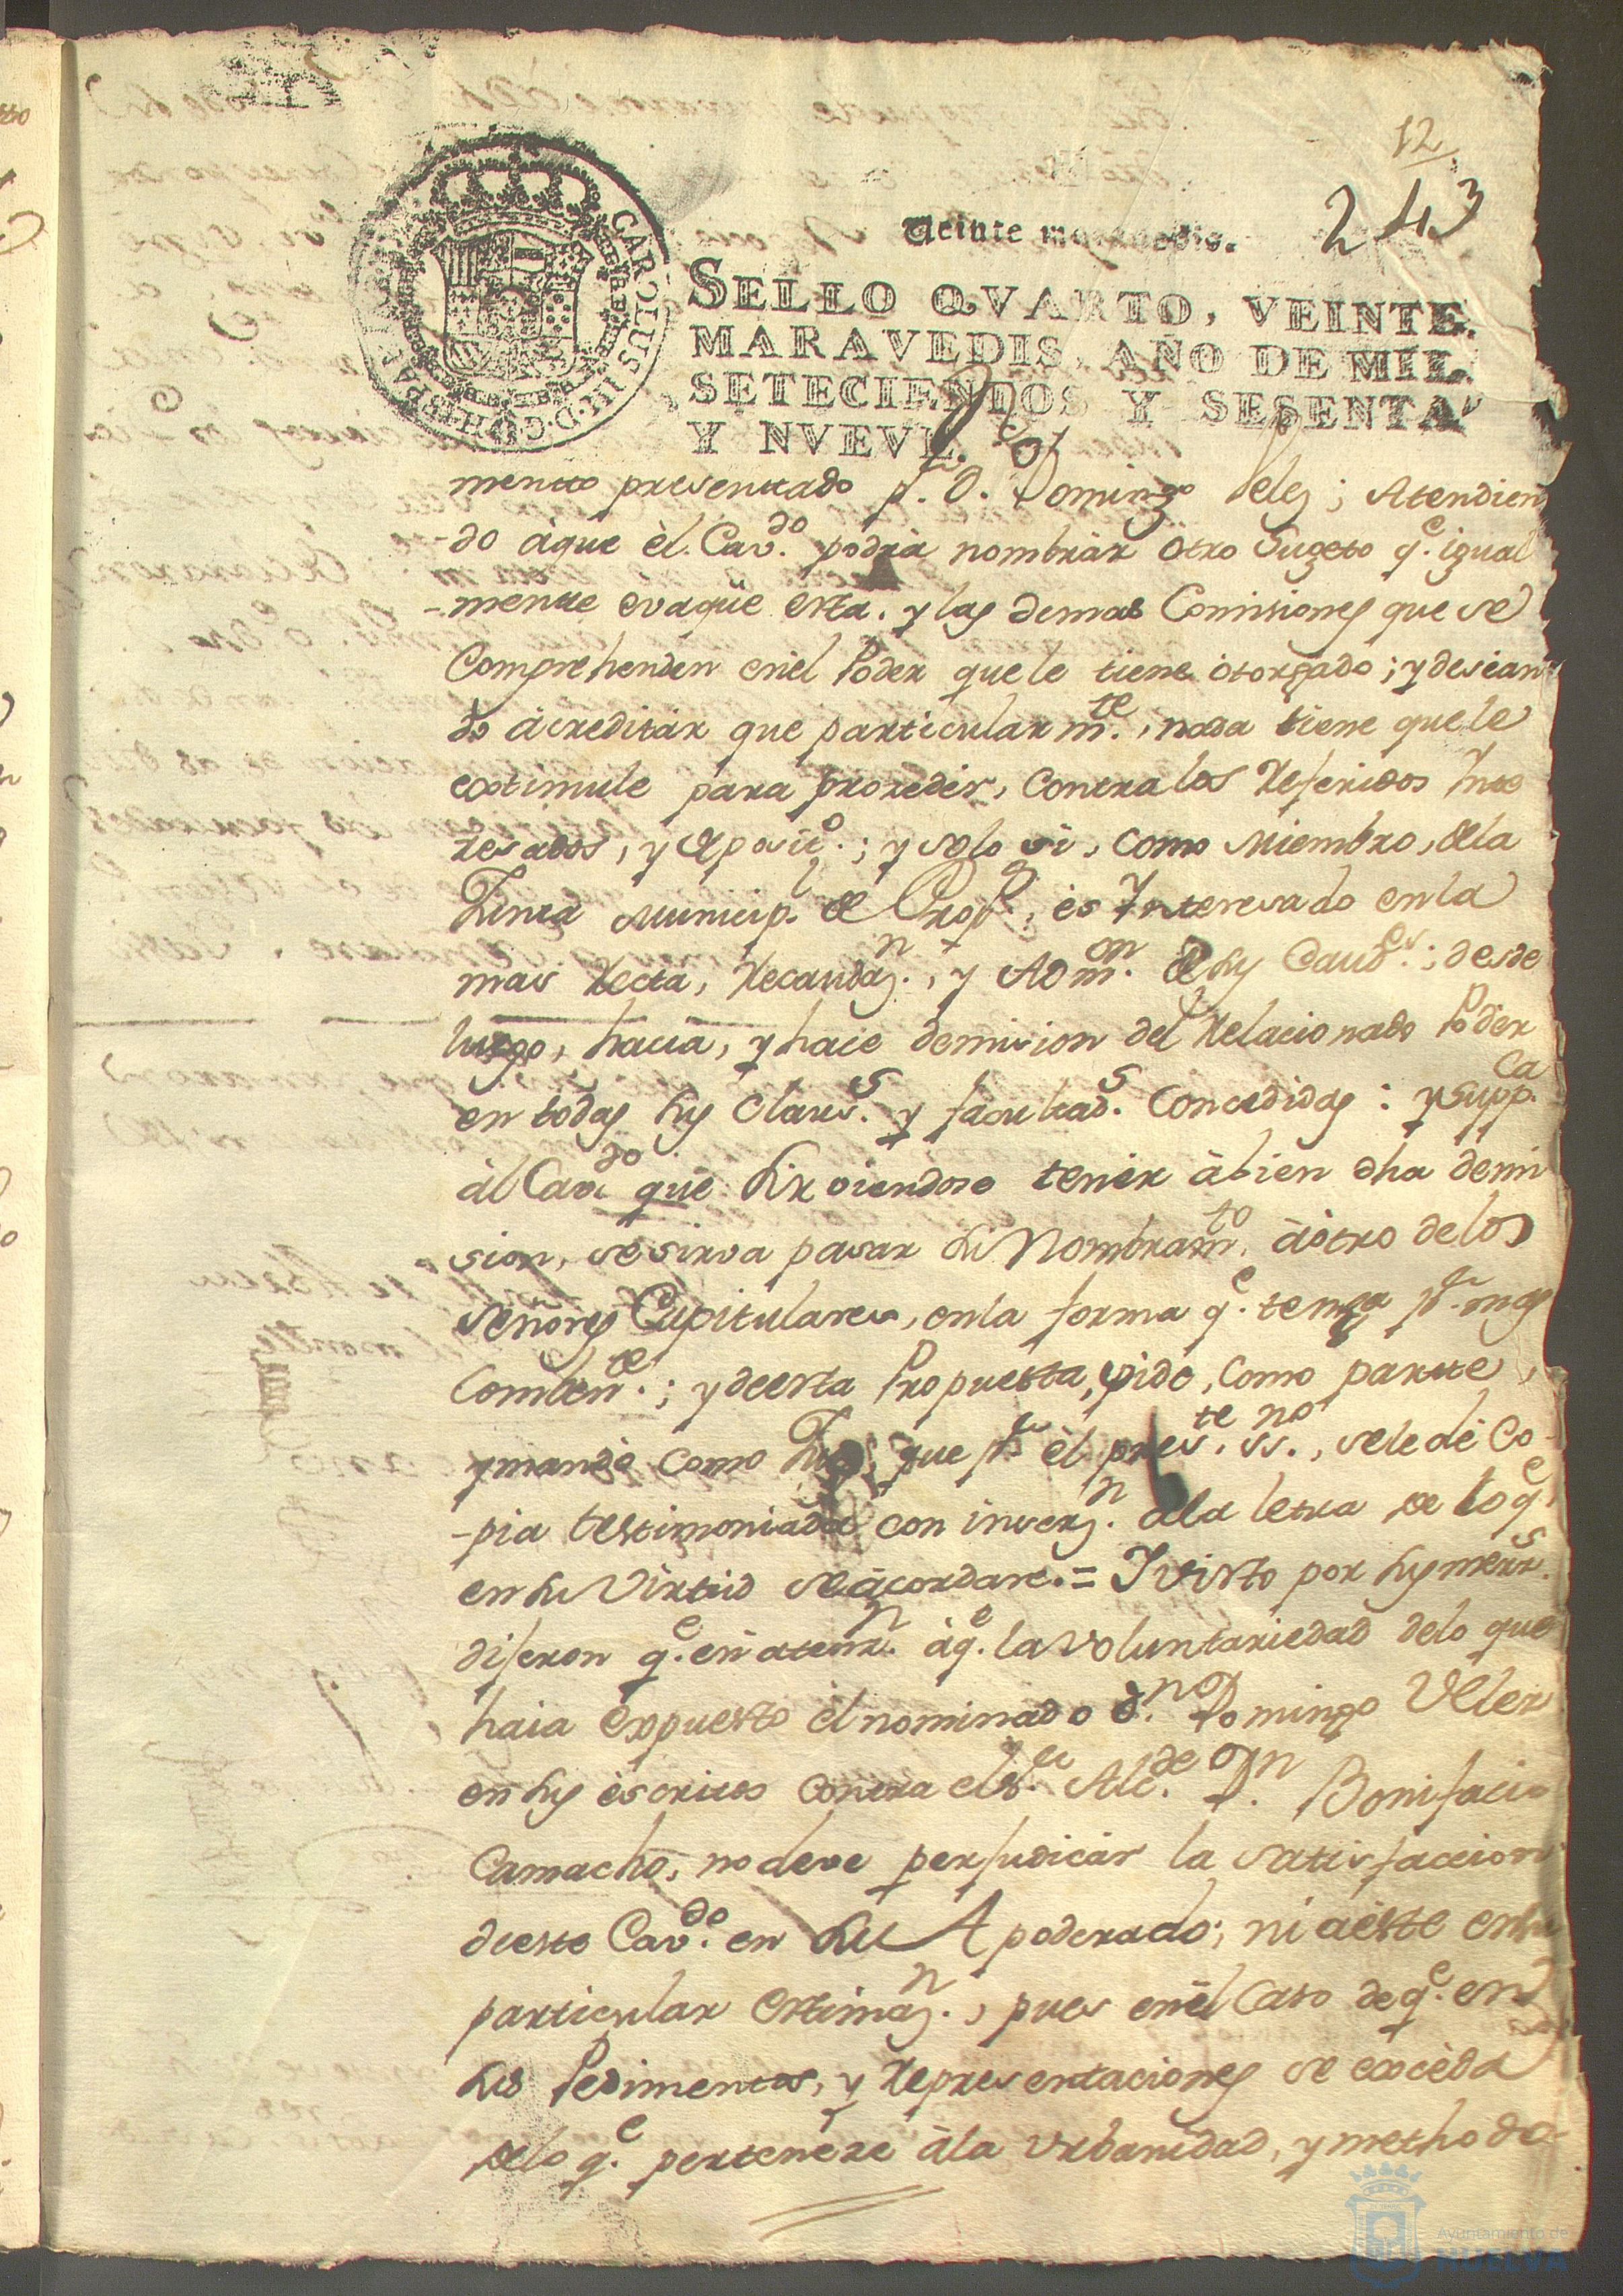 12
243
Veinte maravedis.
SELLO QVARTO, VEINTE
MARAVEDIS, AÑO DE MIL
SETECIENTOS Y SESENTA
Y NVEVE.
CAROLUS III. D. G. HISPANIAR
mento presentado p. D. Domingo Velez; Atendien
-do àque èl. Cavdo. podrà nombràr otro Sugeto qe. igual
-mente evaqüe esta, y las demas Comisiones que se
Comprehenden enèl Poder quele tiene otorgado; y desean
do àcreditàr que particularmte., nada tiene quele
extimule para proceder, Contra los Referidos Inte
resados, y Deposito.; y solo si, como Miembro, dela
Junta Municipl. de Props., ès Interesado enla
mas Recta, Recaudazn., y Admon. de sus Caudes.; desde
luego, hacia, y hace demision del Relacionado Poder
en todas sus Claus.s y facultads. Concedidas: y suppca.
àl Cavdo que Sirviendose tenèr àbien dha demi
sion, se sirva pasar su Nombramto. àotro delos
señores Capitulares, enla forma qe. tenga pr. mas
Combente.; y deesta Propuesta, pide, Como parte,
ymandò como Juez, que pr. èl preste. ssno., sele dè Co
-pia testimoniada con inserzn. ala letra de lo qe
en su Virtud se àcordare. = I visto por sus mersds.
dijeron qe. en atenzn. àqe. la voluntariedad delo que
haia expuesto èl nominado dn. Domingo Velez
en sus èscritos contra el Sr. Alcde. Dn. Bonifacio
Camacho, no deve perjudicàr la satisfaccion
deeste Cavdo. en su Apoderado; ni aèste ensu
particular Estimazn., pues enèl Caso deqe. en
sus Pedimentos, y Representaciones se excèda
delo qe. pertenese àla Urbanidad, y methodo
Ayuntamiento de
HUELVA